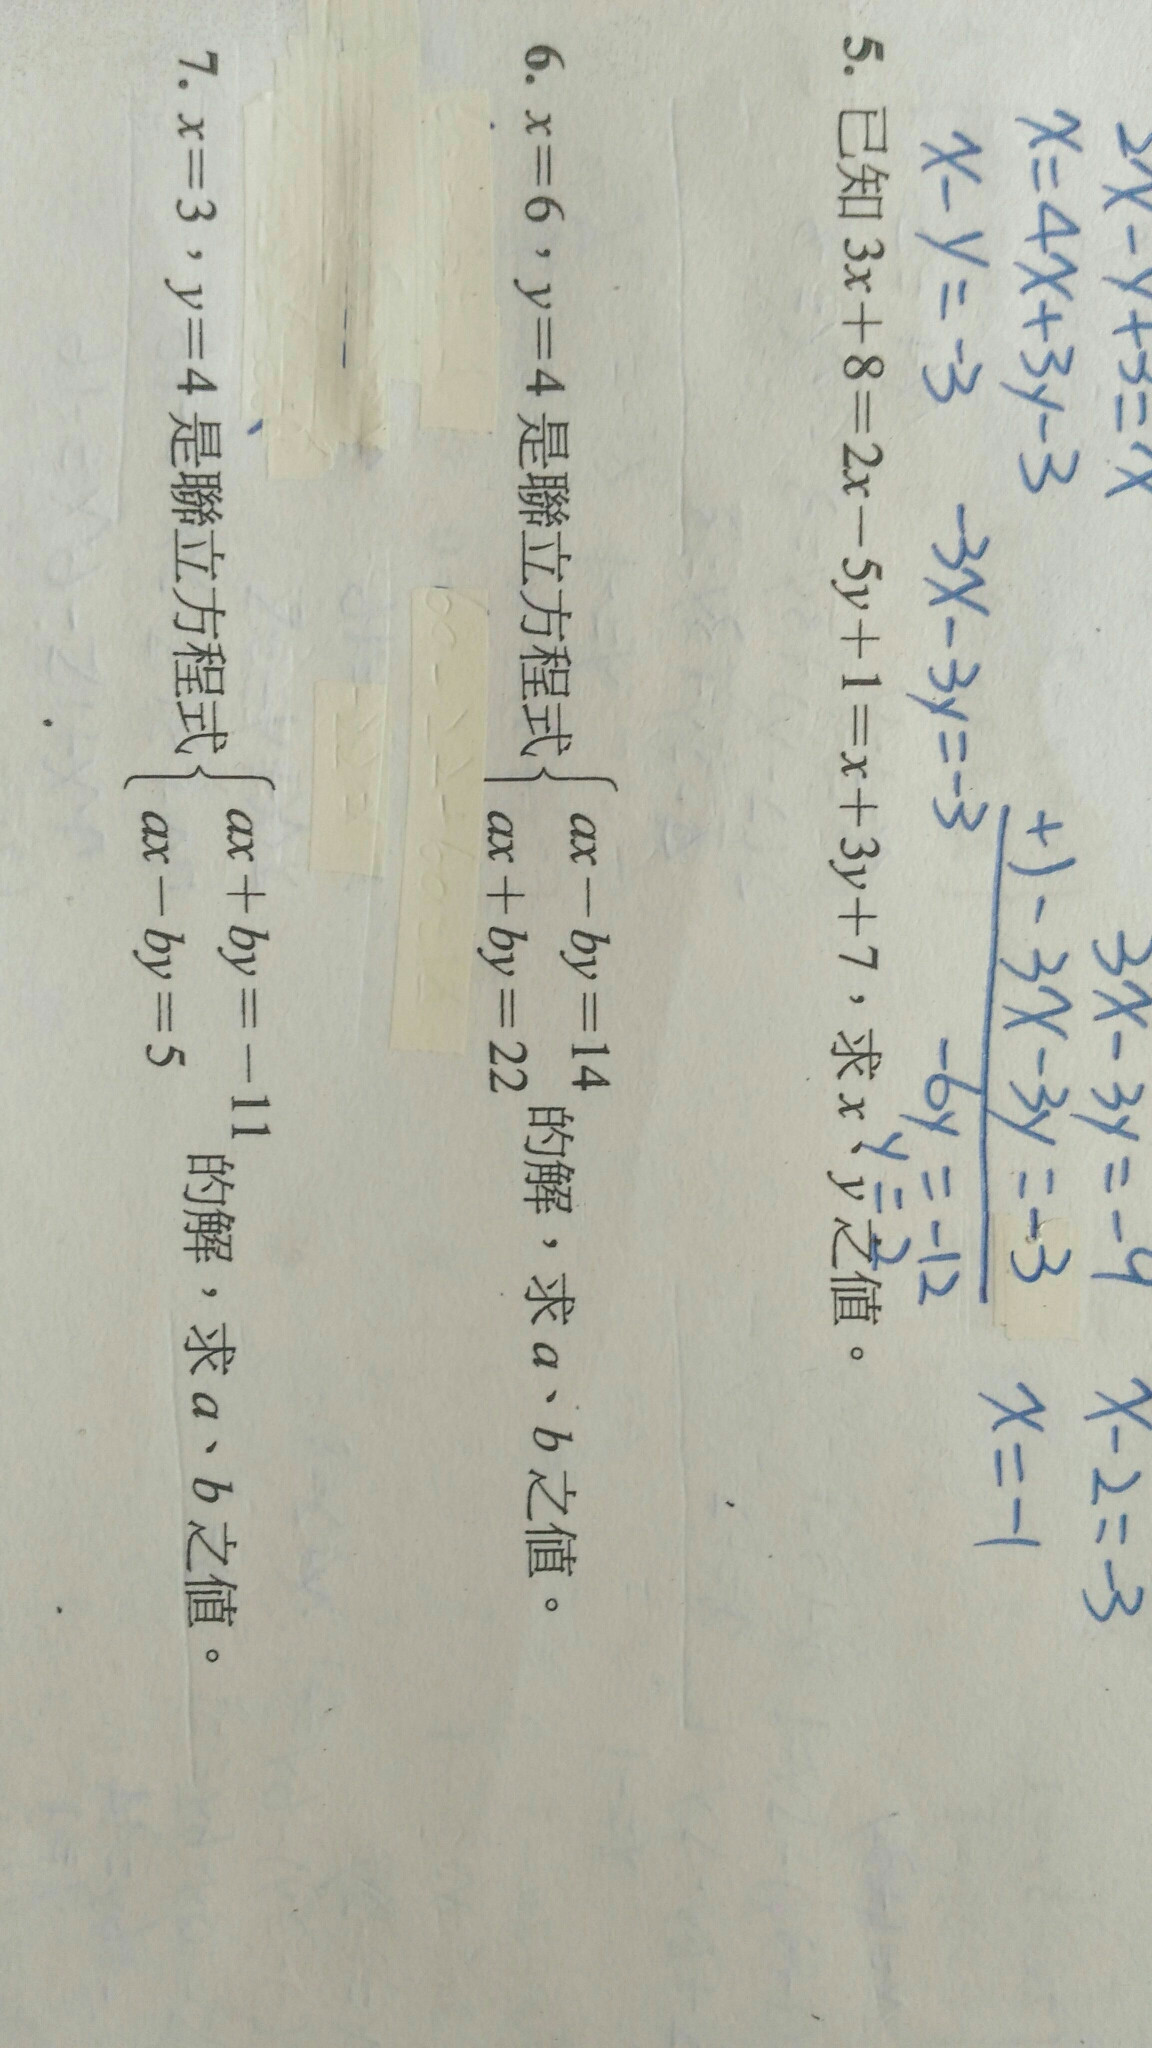 2x-y+3=x
3x-3y=-9
x-2=-3
x=4x+3y-3
+)-3x-3y=-3
x=-1
x-y=-3
-3x-3y=-3
-6y=-12
y=2
5. 已知3x+8=2x-5y+1=x+3y+7，求x、y之值。
6. x=6，y=4是聯立方程式{ax-by=14
ax+by=22
的解，求a、b之值。
7. x=3，y=4是聯立方程式{ax+by=-11
ax-by=5
的解，求a、b之值。